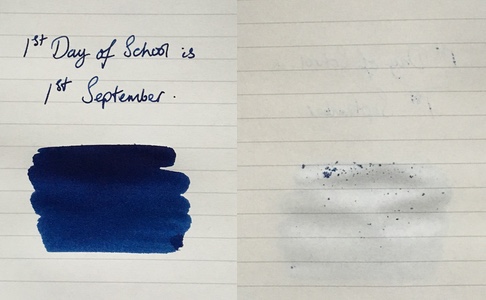 1st Day of School is
1st September.